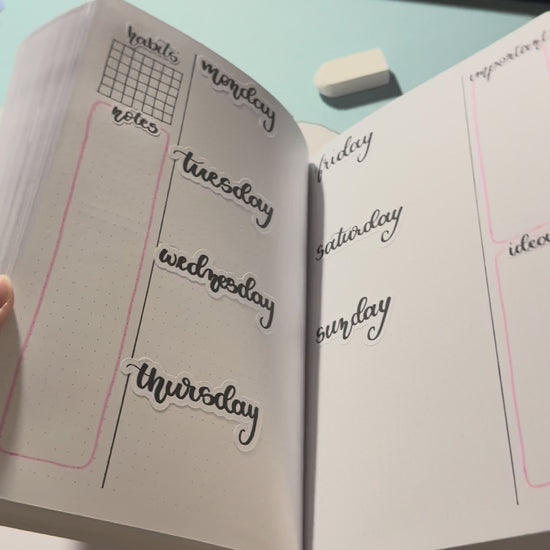 habits
notes
monday
tuesday
wednesday
thursday
friday
saturday
sunday
important
ideas